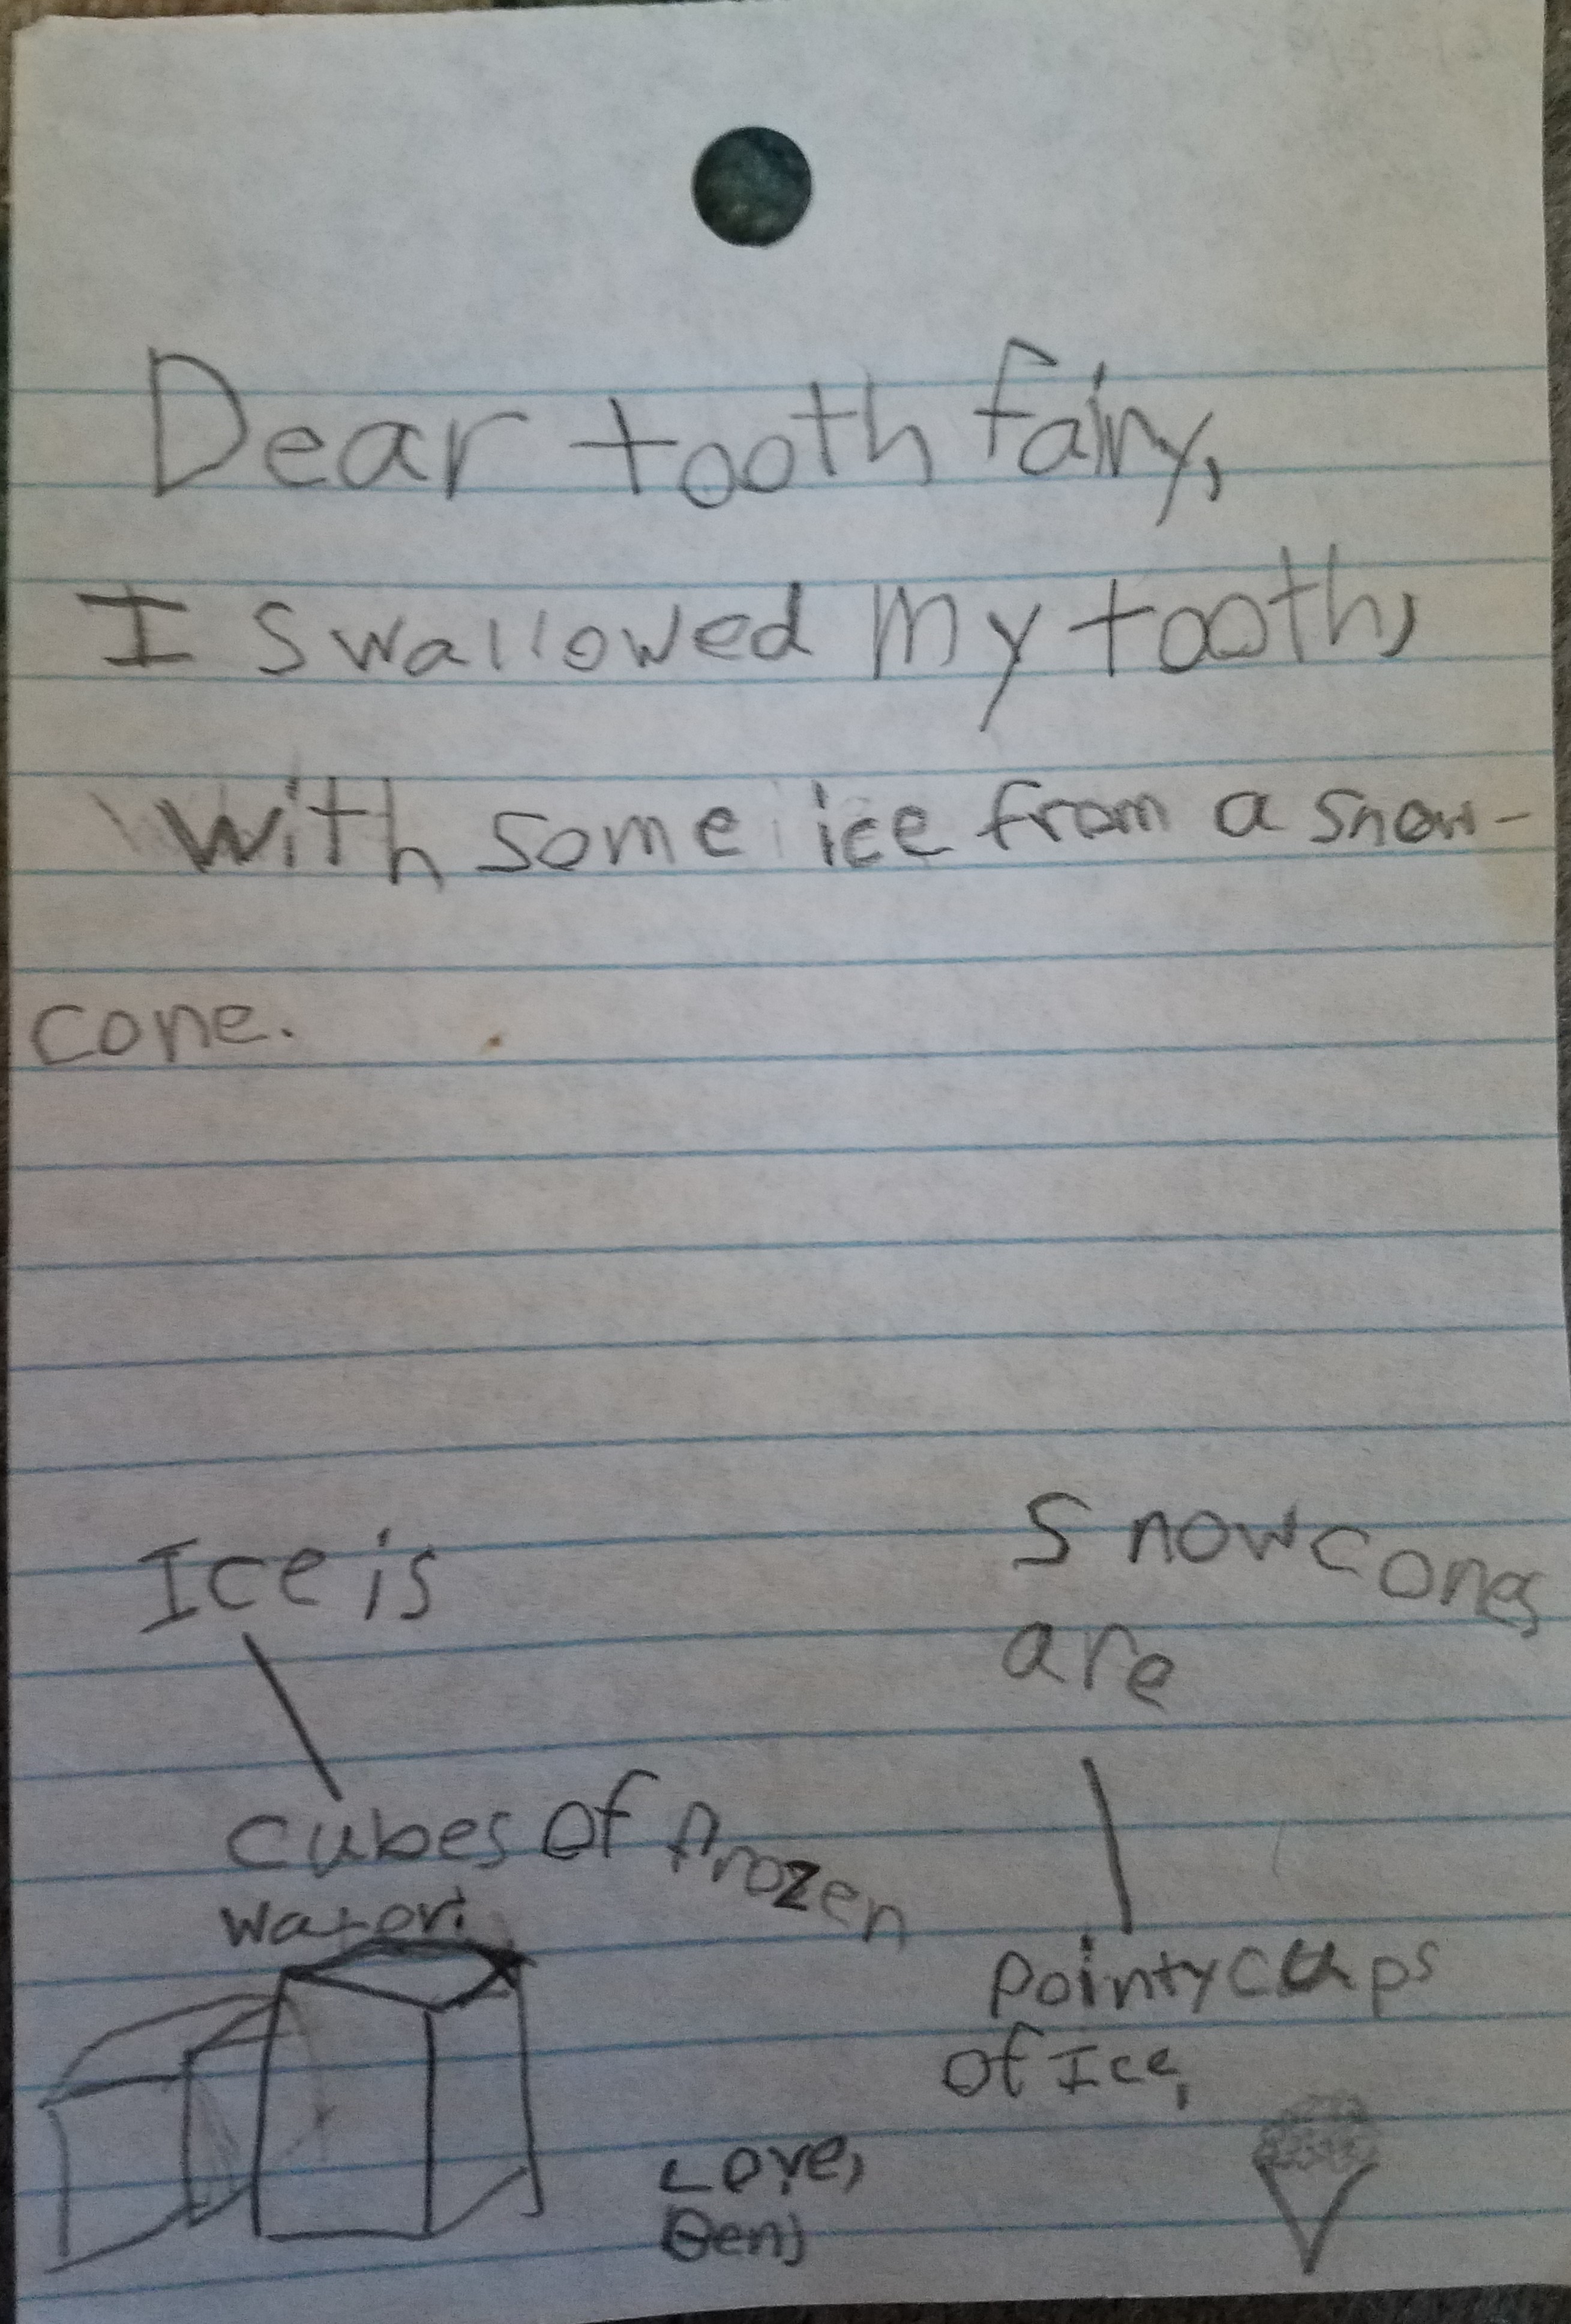 Dear tooth fairy,
I swallowed my tooth,
with some ice from a snow-
cone.
Ice is
cubes of frozen
water.
Snowcones
are
pointy cups
of Ice,
Love,
Ben)